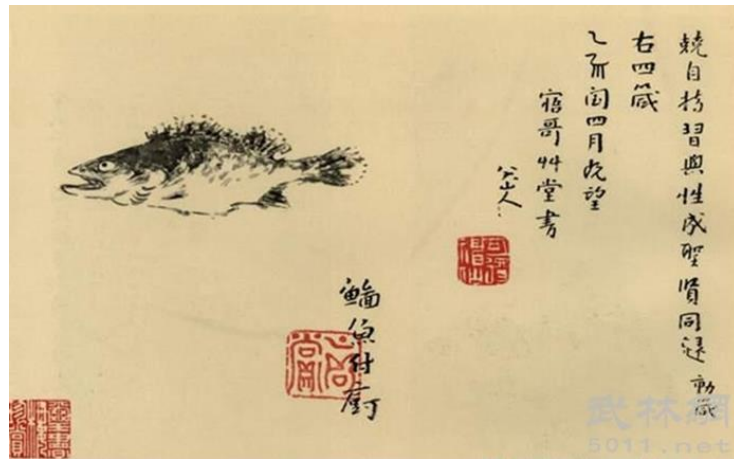 兢自持習與性成聖賢同歸 動箴
右四箴
乙亥閏四月望
寤哥艸堂書
八大山人
魚付廚
武林網
5011.net